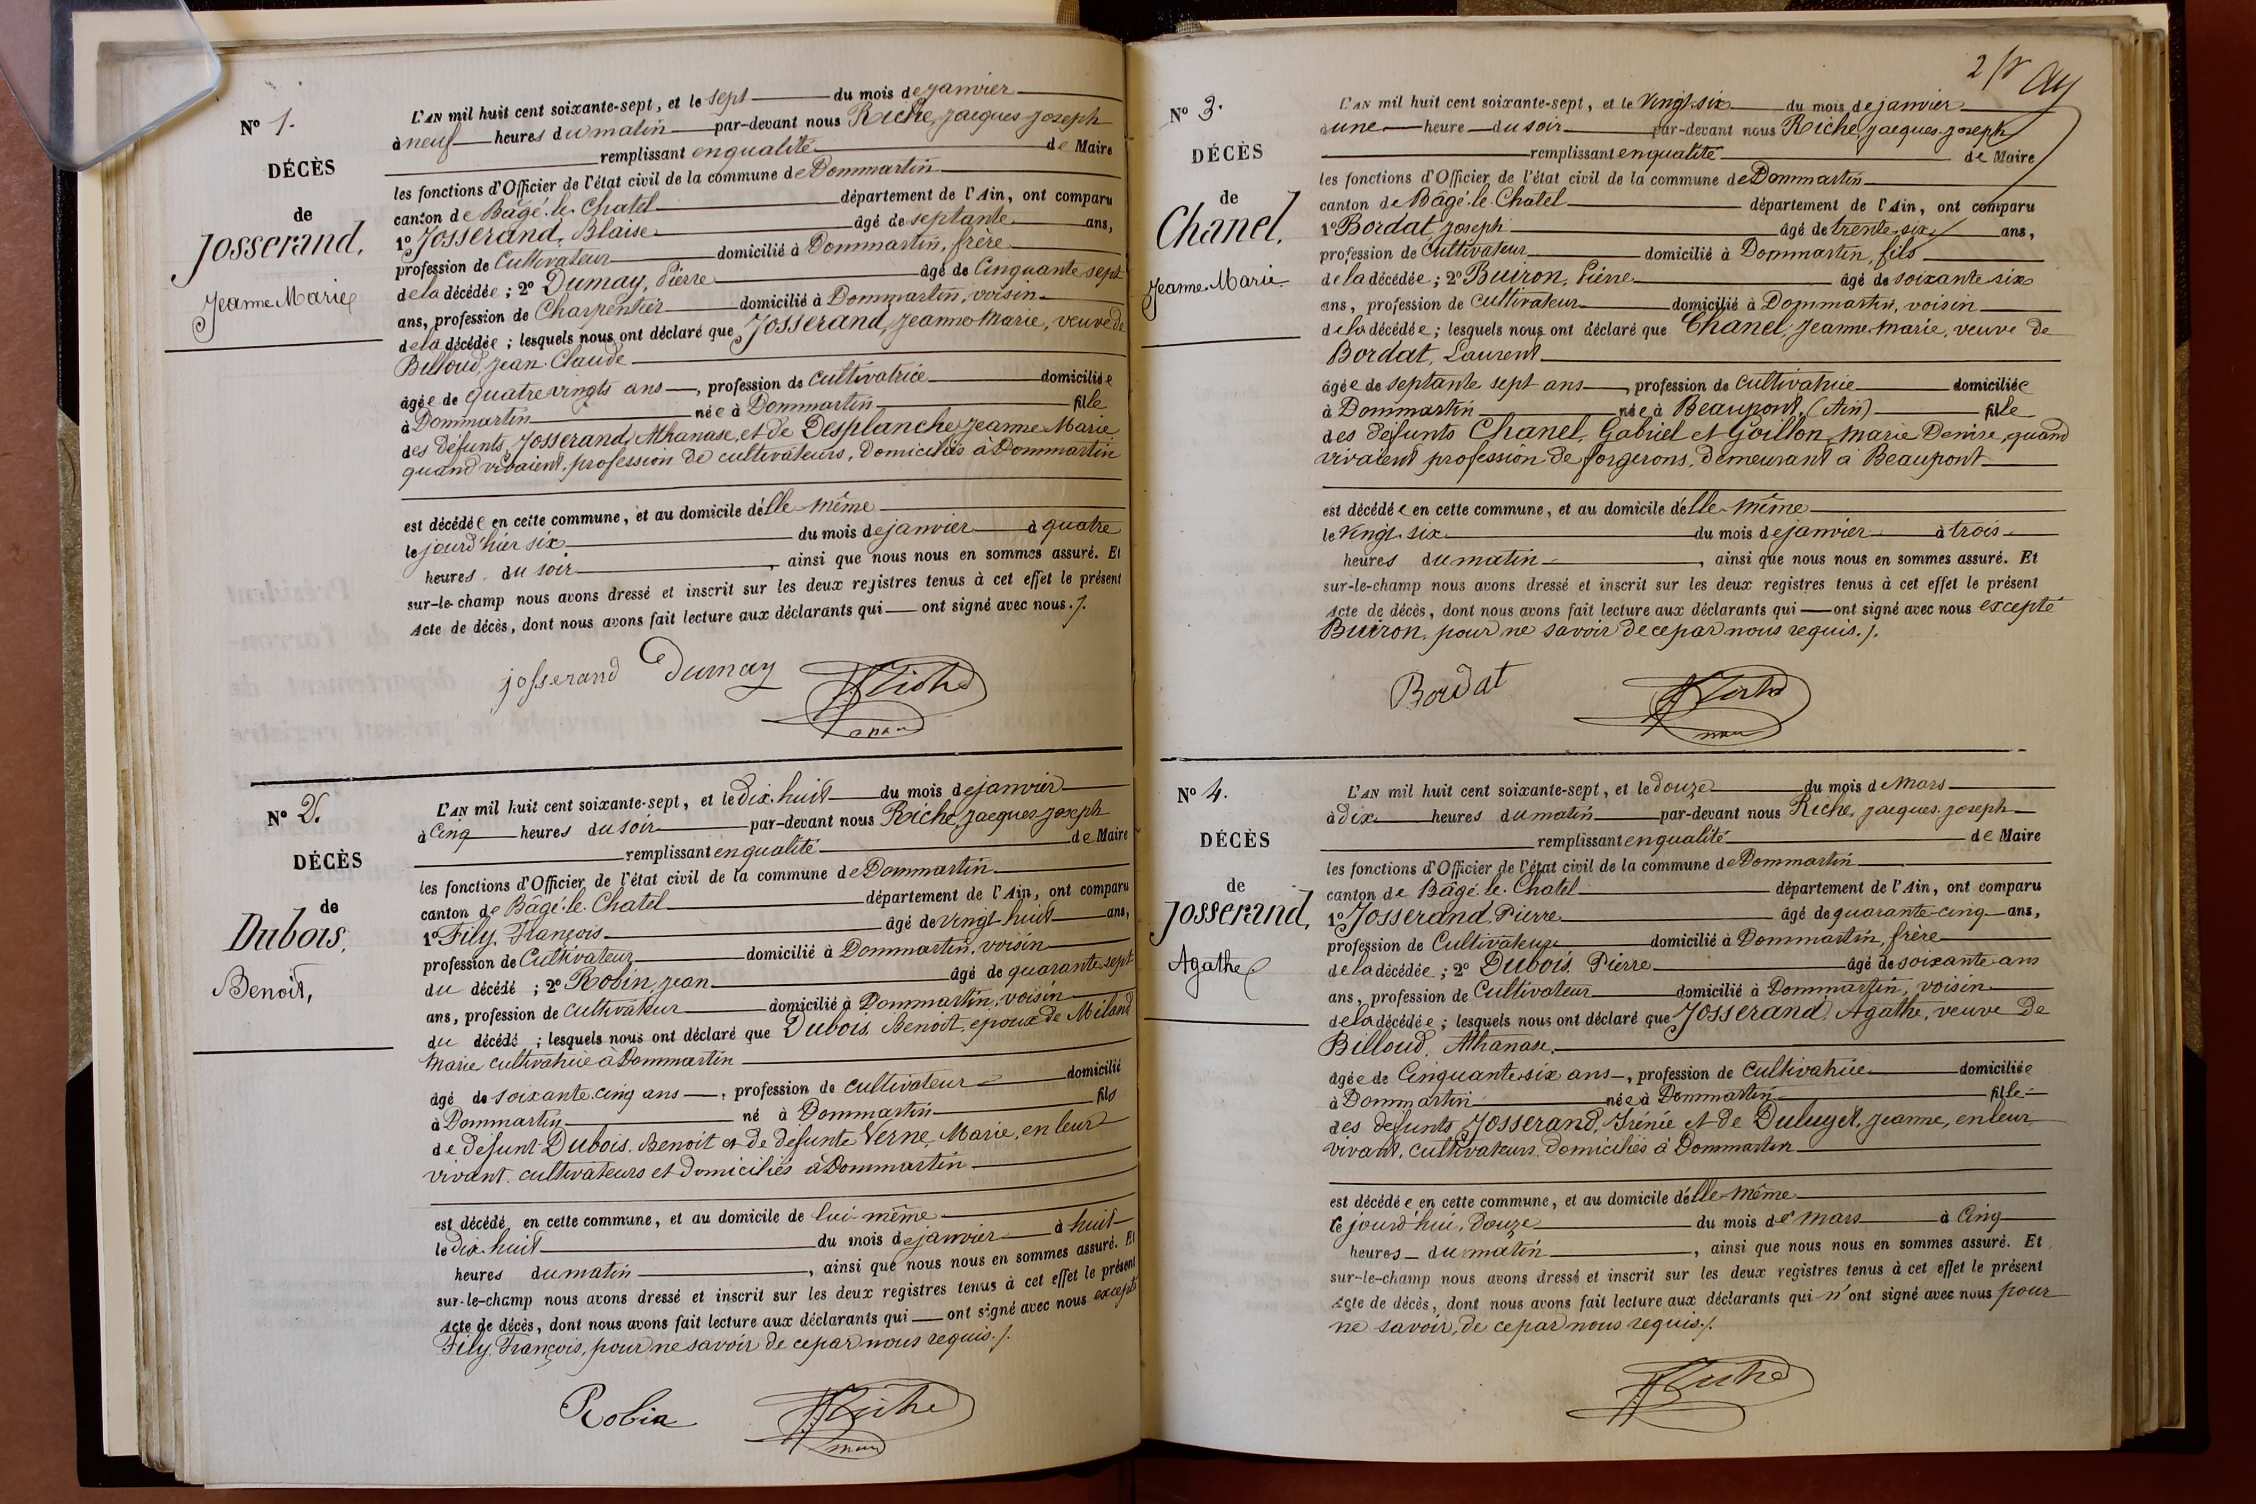 No 1.
DÉCÈS
de
Josserand,
Jeanne Marie
L'AN mil huit cent soixante-sept, et le sept du mois de janvier
à neuf heures du matin par-devant nous Riche, Jacques Joseph
remplissant en qualité de Maire
les fonctions d'Officier de l'état civil de la commune de Dommartin
canton de Bâgé-le-Chatel département de l'Ain, ont comparu
1º Josserand, Blaise âgé de septante ans,
profession de Cultivateur domicilié à Dommartin, frère
de la décédée ; 2º Dumay, Pierre âgé de Cinquante sept
ans, profession de Charpentier domicilié à Dommartin, voisin
de la décédée ; lesquels nous ont déclaré que Josserand, Jeanne Marie, veuve de
Billoud, Jean-Claude
âgée de quatre vingts ans, profession de cultivatrice domiciliée
à Dommartin née à Dommartin fille
des défunts Josserand, Athanase, et de Desplanche, Jeanne Marie
quand vivaient, profession de cultivateurs, domiciliés à Dommartin
est décédée en cette commune, et au domicile d'elle-même
le jourd'hier six du mois de janvier à quatre
heures du soir, ainsi que nous nous en sommes assuré. Et
sur-le-champ nous avons dressé et inscrit sur les deux registres tenus à cet effet le présent
Acte de décès, dont nous avons fait lecture aux déclarants qui ont signé avec nous./.
josserand Dumay Riche
No 2.
DÉCÈS
de
Dubois,
Benoit,
L'AN mil huit cent soixante-sept, et le dix-huit du mois de janvier
à Cinq heures du soir par-devant nous Riche, Jacques Joseph
remplissant en qualité de Maire
les fonctions d'Officier de l'état civil de la commune de Dommartin
canton de Bâgé-le-Chatel département de l'Ain, ont comparu
1º Fily, François âgé de vingt huit ans,
profession de Cultivateur domicilié à Dommartin, voisin
du décédé ; 2º Robin, Jean âgé de quarante sept
ans, profession de cultivateur domicilié à Dommartin, voisin
du décédé ; lesquels nous ont déclaré que Dubois, Benoit, époux de Miland
Marie cultivatrice à Dommartin
âgé de soixante-cinq ans, profession de cultivateur domicilié
à Dommartin né à Dommartin fils
de défunt Dubois, Benoit et de defunte Verne, Marie, en leur
vivant, cultivateurs et domiciliés à Dommartin
est décédé en cette commune, et au domicile de lui-même
le dix-huit du mois de janvier à huit
heures du matin, ainsi que nous nous en sommes assuré. Et
sur-le-champ nous avons dressé et inscrit sur les deux registres tenus à cet effet le présent
Acte de décès, dont nous avons fait lecture aux déclarants qui ont signé avec nous excepté
Fily, François, pour ne savoir de ce par nous requis./.
Robin Riche
2
No 3.
DÉCÈS
de
Chanel,
Jeanne-Marie
L'AN mil huit cent soixante-sept, et le Vingt-six du mois de janvier
à une heure du soir par-devant nous Riche, Jacques-Joseph
remplissant en qualité de Maire
les fonctions d'Officier de l'état civil de la commune de Dommartin
canton de Bâgé-le-Chatel département de l'Ain, ont comparu
1º Bordat, Joseph âgé de trente-six ans,
profession de Cultivateur domicilié à Dommartin, fils
de la décédée ; 2º Buiron, Pierre âgé de soixante six
ans, profession de cultivateur domicilié à Dommartin, voisin
de la décédée ; lesquels nous ont déclaré que Chanel, Jeanne-Marie, veuve de
Bordat, Laurent
âgée de septante sept ans, profession de cultivatrice domiciliée
à Dommartin née à Beaupont, (Ain) fille
des défunts Chanel, Gabriel et Goillon, Marie Denise, quand
vivaient profession de forgerons, demeurant à Beaupont
est décédée en cette commune, et au domicile d'elle-même
le Vingt-six du mois de janvier à trois
heures du matin, ainsi que nous nous en sommes assuré. Et
sur-le-champ nous avons dressé et inscrit sur les deux registres tenus à cet effet le présent
Acte de décès, dont nous avons fait lecture aux déclarants qui ont signé avec nous excepté
Buiron, pour ne savoir de ce par nous requis./.
Bordat Riche
No 4.
DÉCÈS
de
Josserand,
Agathe
L'AN mil huit cent soixante-sept, et le douze du mois de Mars
à dix heures du matin par-devant nous Riche, Jacques-Joseph
remplissant en qualité de Maire
les fonctions d'Officier de l'état civil de la commune de Dommartin
canton de Bâgé-le-Chatel département de l'Ain, ont comparu
1º Josserand, Pierre âgé de quarante-cinq ans,
profession de Cultivateur domicilié à Dommartin, frère
de la décédée ; 2º Dubois, Pierre âgé de soixante ans
ans, profession de Cultivateur domicilié à Dommartin, voisin
de la décédée ; lesquels nous ont déclaré que Josserand, Agathe, veuve de
Billoud, Athanase,
âgée de Cinquante-six ans, profession de Cultivatrice domiciliée
à Dommartin née à Dommartin fille
des défunts Josserand, Irénée et de Duluget, Jeanne, en leur
vivant, cultivateurs domiciliés à Dommartin
est décédée en cette commune, et au domicile d'elle-même
le jourd'hui, douze du mois de mars à Cinq
heures du matin, ainsi que nous nous en sommes assuré. Et
sur-le-champ nous avons dressé et inscrit sur les deux registres tenus à cet effet le présent
Acte de décès, dont nous avons fait lecture aux déclarants qui n'ont signé avec nous pour
ne savoir, de ce par nous requis./.
Riche